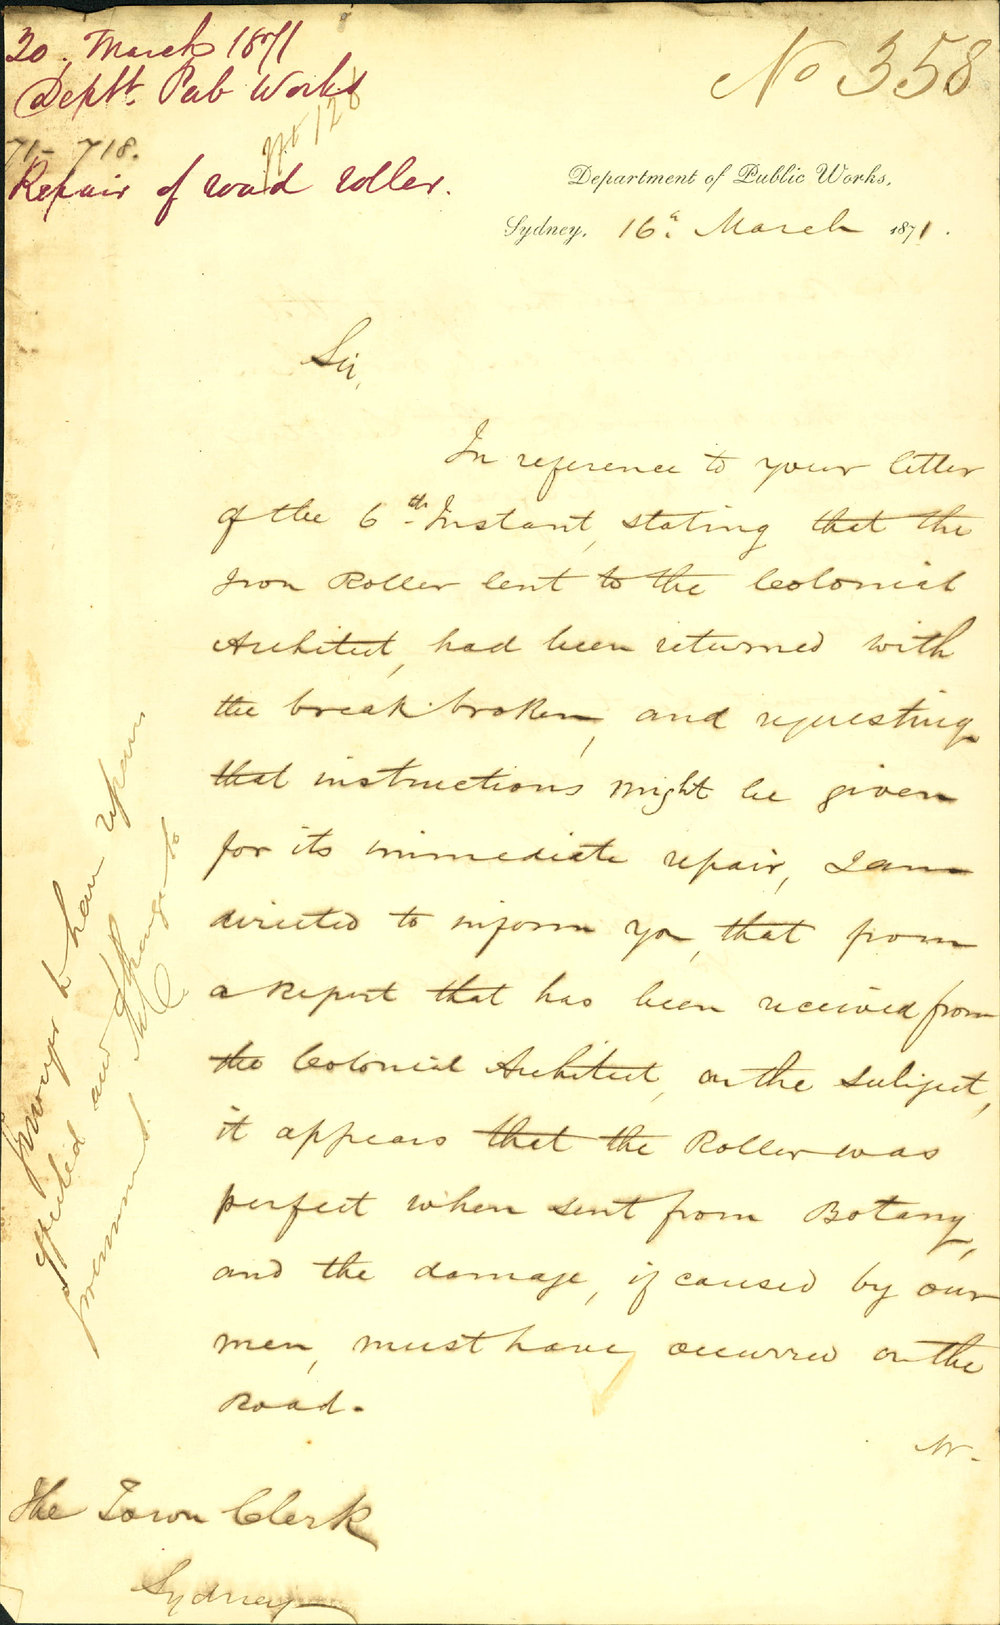 20, March 1871
Deptt. Pub Works
71-718.
Repair of road roller.
No 358
Department of Public Works,
Sydney, 16th March 1871.
Sir,
In reference to your letter
of the 6th Instant, stating that the
Iron Roller lent to the Colonial
Architect, had been returned with
the break broken, and requesting
that instructions might be given
for its immediate repair, I am
directed to inform you, that from
a Report that has been received from
the Colonial Architect, on the subject,
it appears that the Roller was
perfect when sent from Botany,
and the damage, if caused by our
men, must have occurred on the
Road.
The Town Clerk
Sydney
to have repairs
effected and charge to
Government